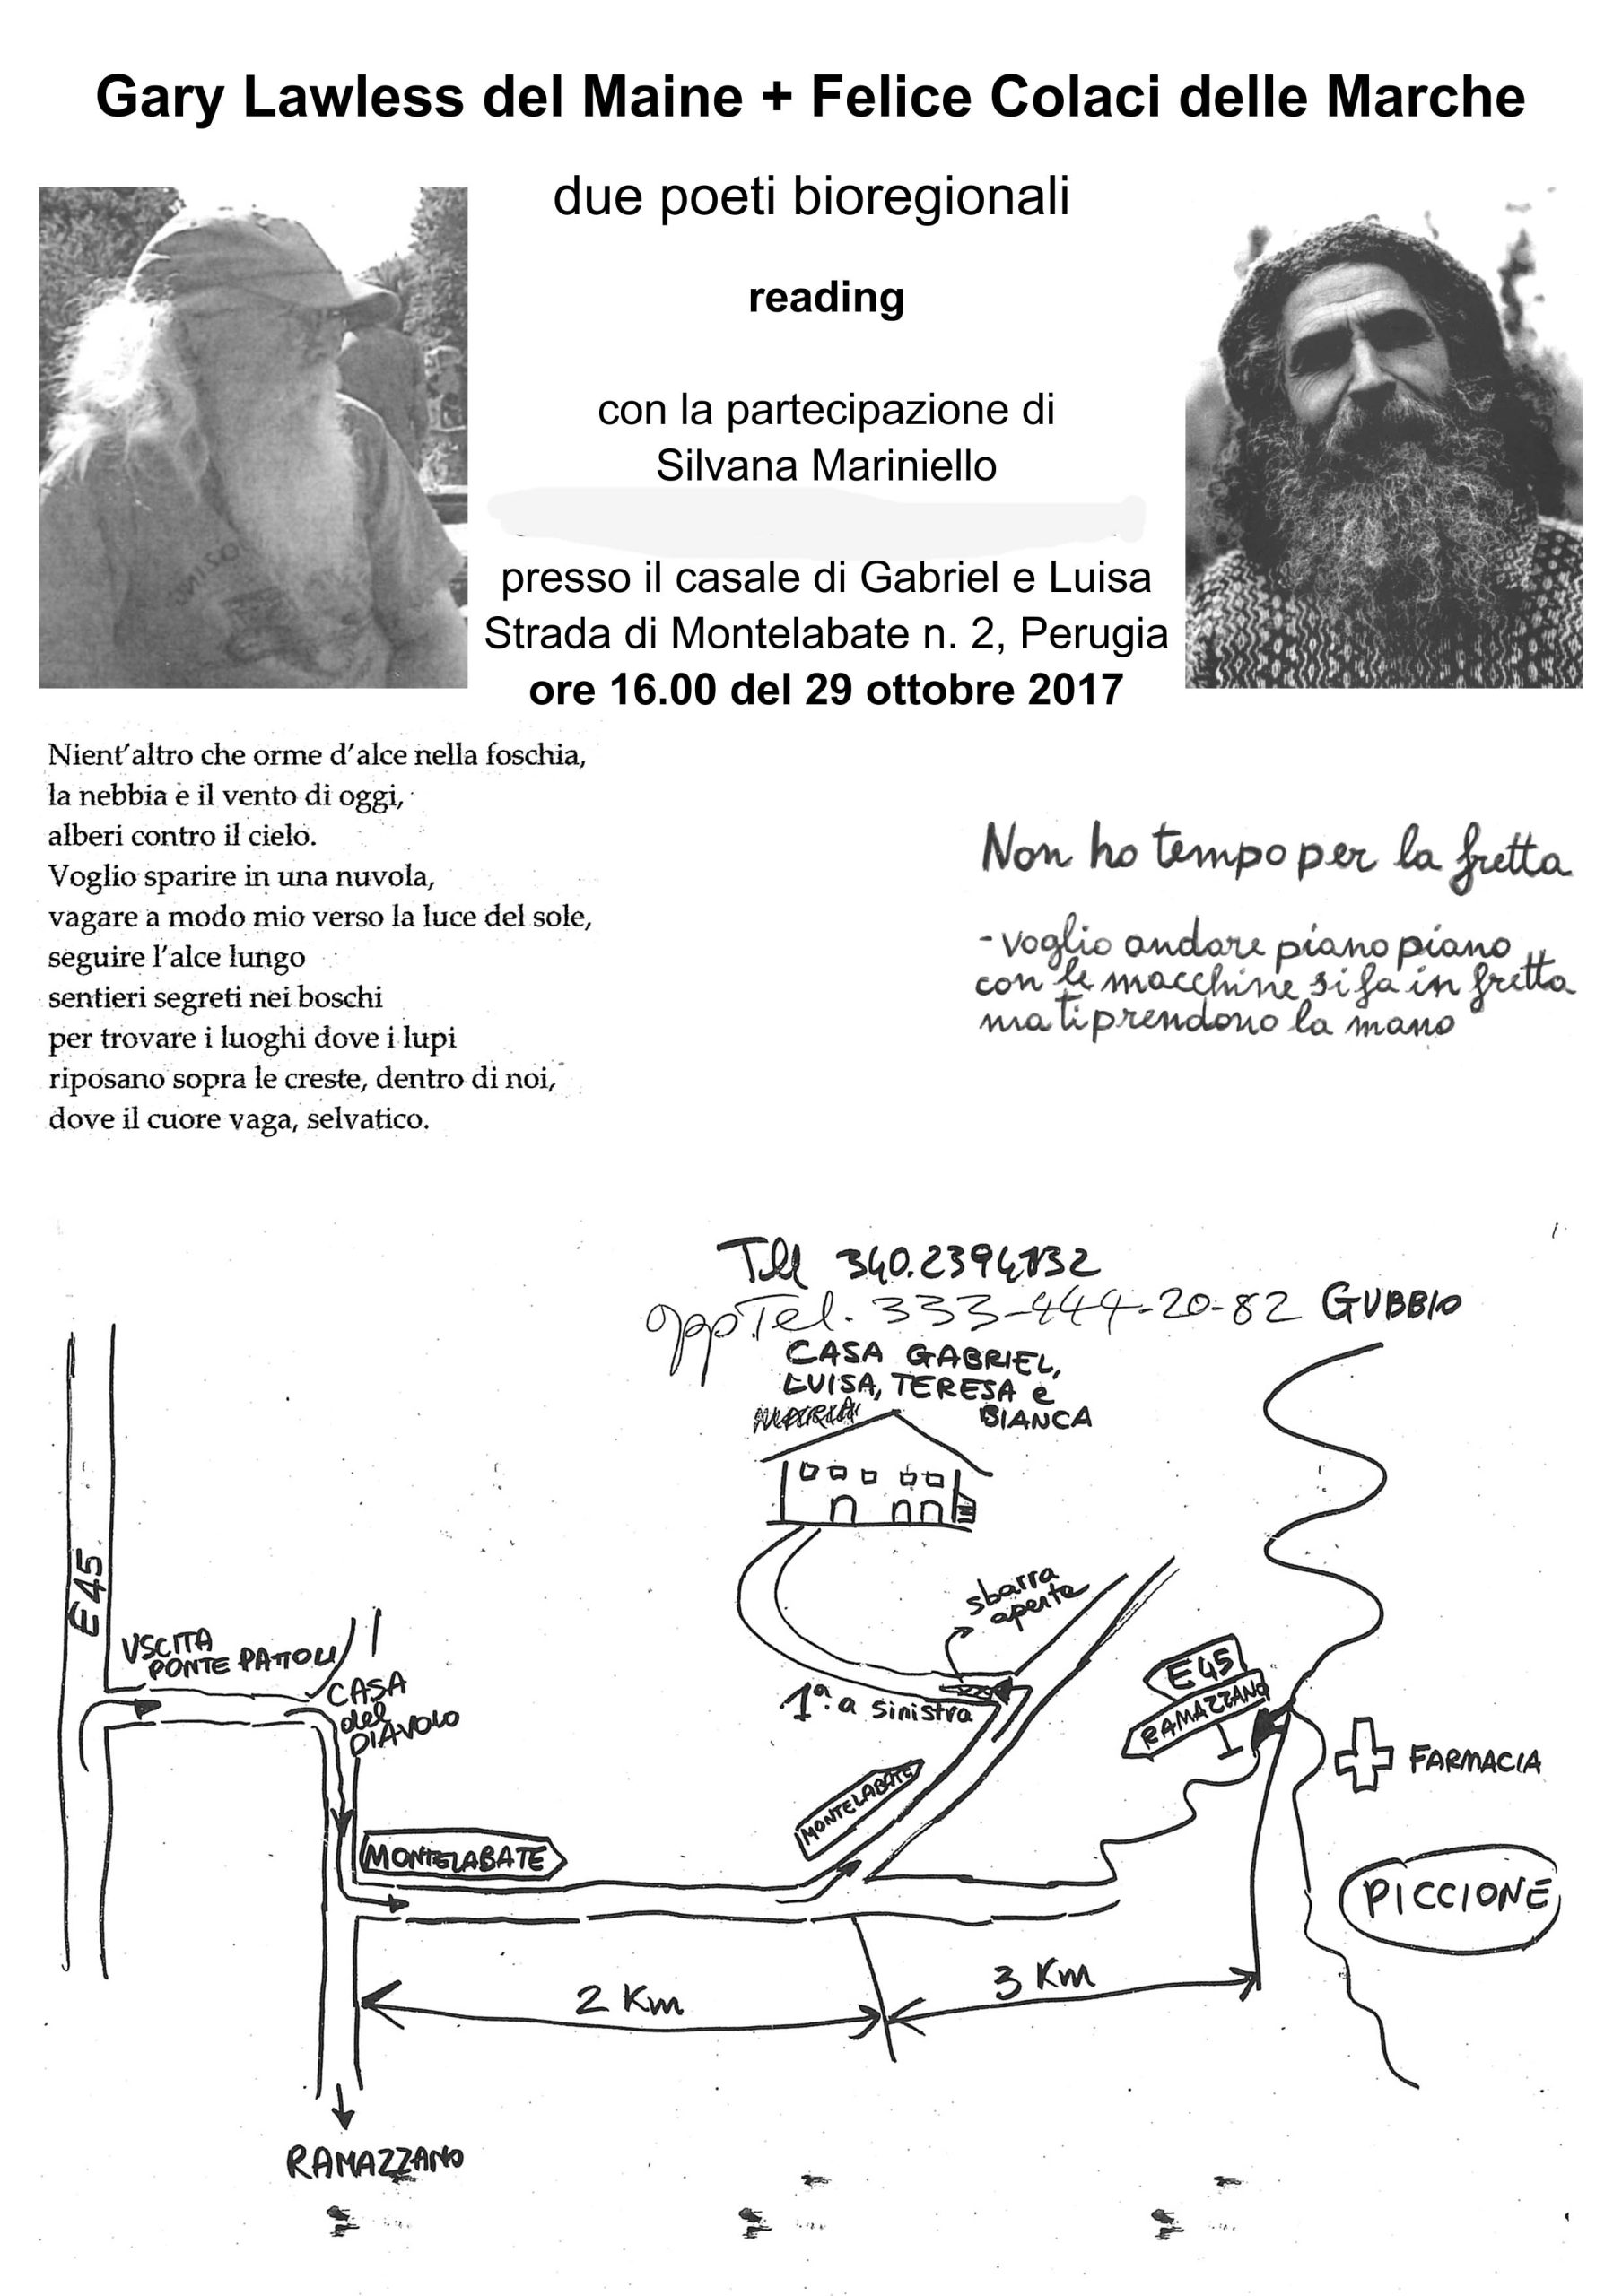 Gary Lawless del Maine + Felice Colaci delle Marche
due poeti bioregionali
reading
con la partecipazione di
Silvana Mariniello
presso il casale di Gabriel e Luisa
Strada di Montelabate n. 2, Perugia
ore 16.00 del 29 ottobre 2017
Nient'altro che orme d'alce nella foschia,
la nebbia e il vento di oggi,
alberi contro il cielo.
Voglio sparire in una nuvola,
vagare a modo mio verso la luce del sole,
seguire l'alce lungo
sentieri segreti nei boschi
per trovare i luoghi dove i lupi
riposano sopra le creste, dentro di noi,
dove il cuore vaga, selvatico.
Non ho tempo per la fretta
- voglio andare piano piano
con le macchine si fa in fretta
ma ti prendono la mano
Tel 340.2394132
oppTel. 333-444-20-82
GUBBIO
CASA GABRIEL,
LUISA, TERESA e
BIANCA
E45
USCITA
PONTE PATTOLI
CASA
del
DIAVOLO
sbarra
aperta
1ª a sinistra
E45
RAMAZZANO
FARMACIA
MONTELABATE
MONTELABATE
PICCIONE
2 Km
3 Km
RAMAZZANO